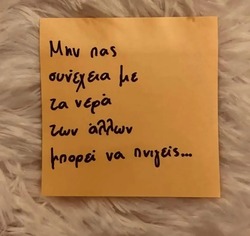 Μην πας
συνέχεια με
τα νερά
των άλλων
μπορεί να πνιγείς...